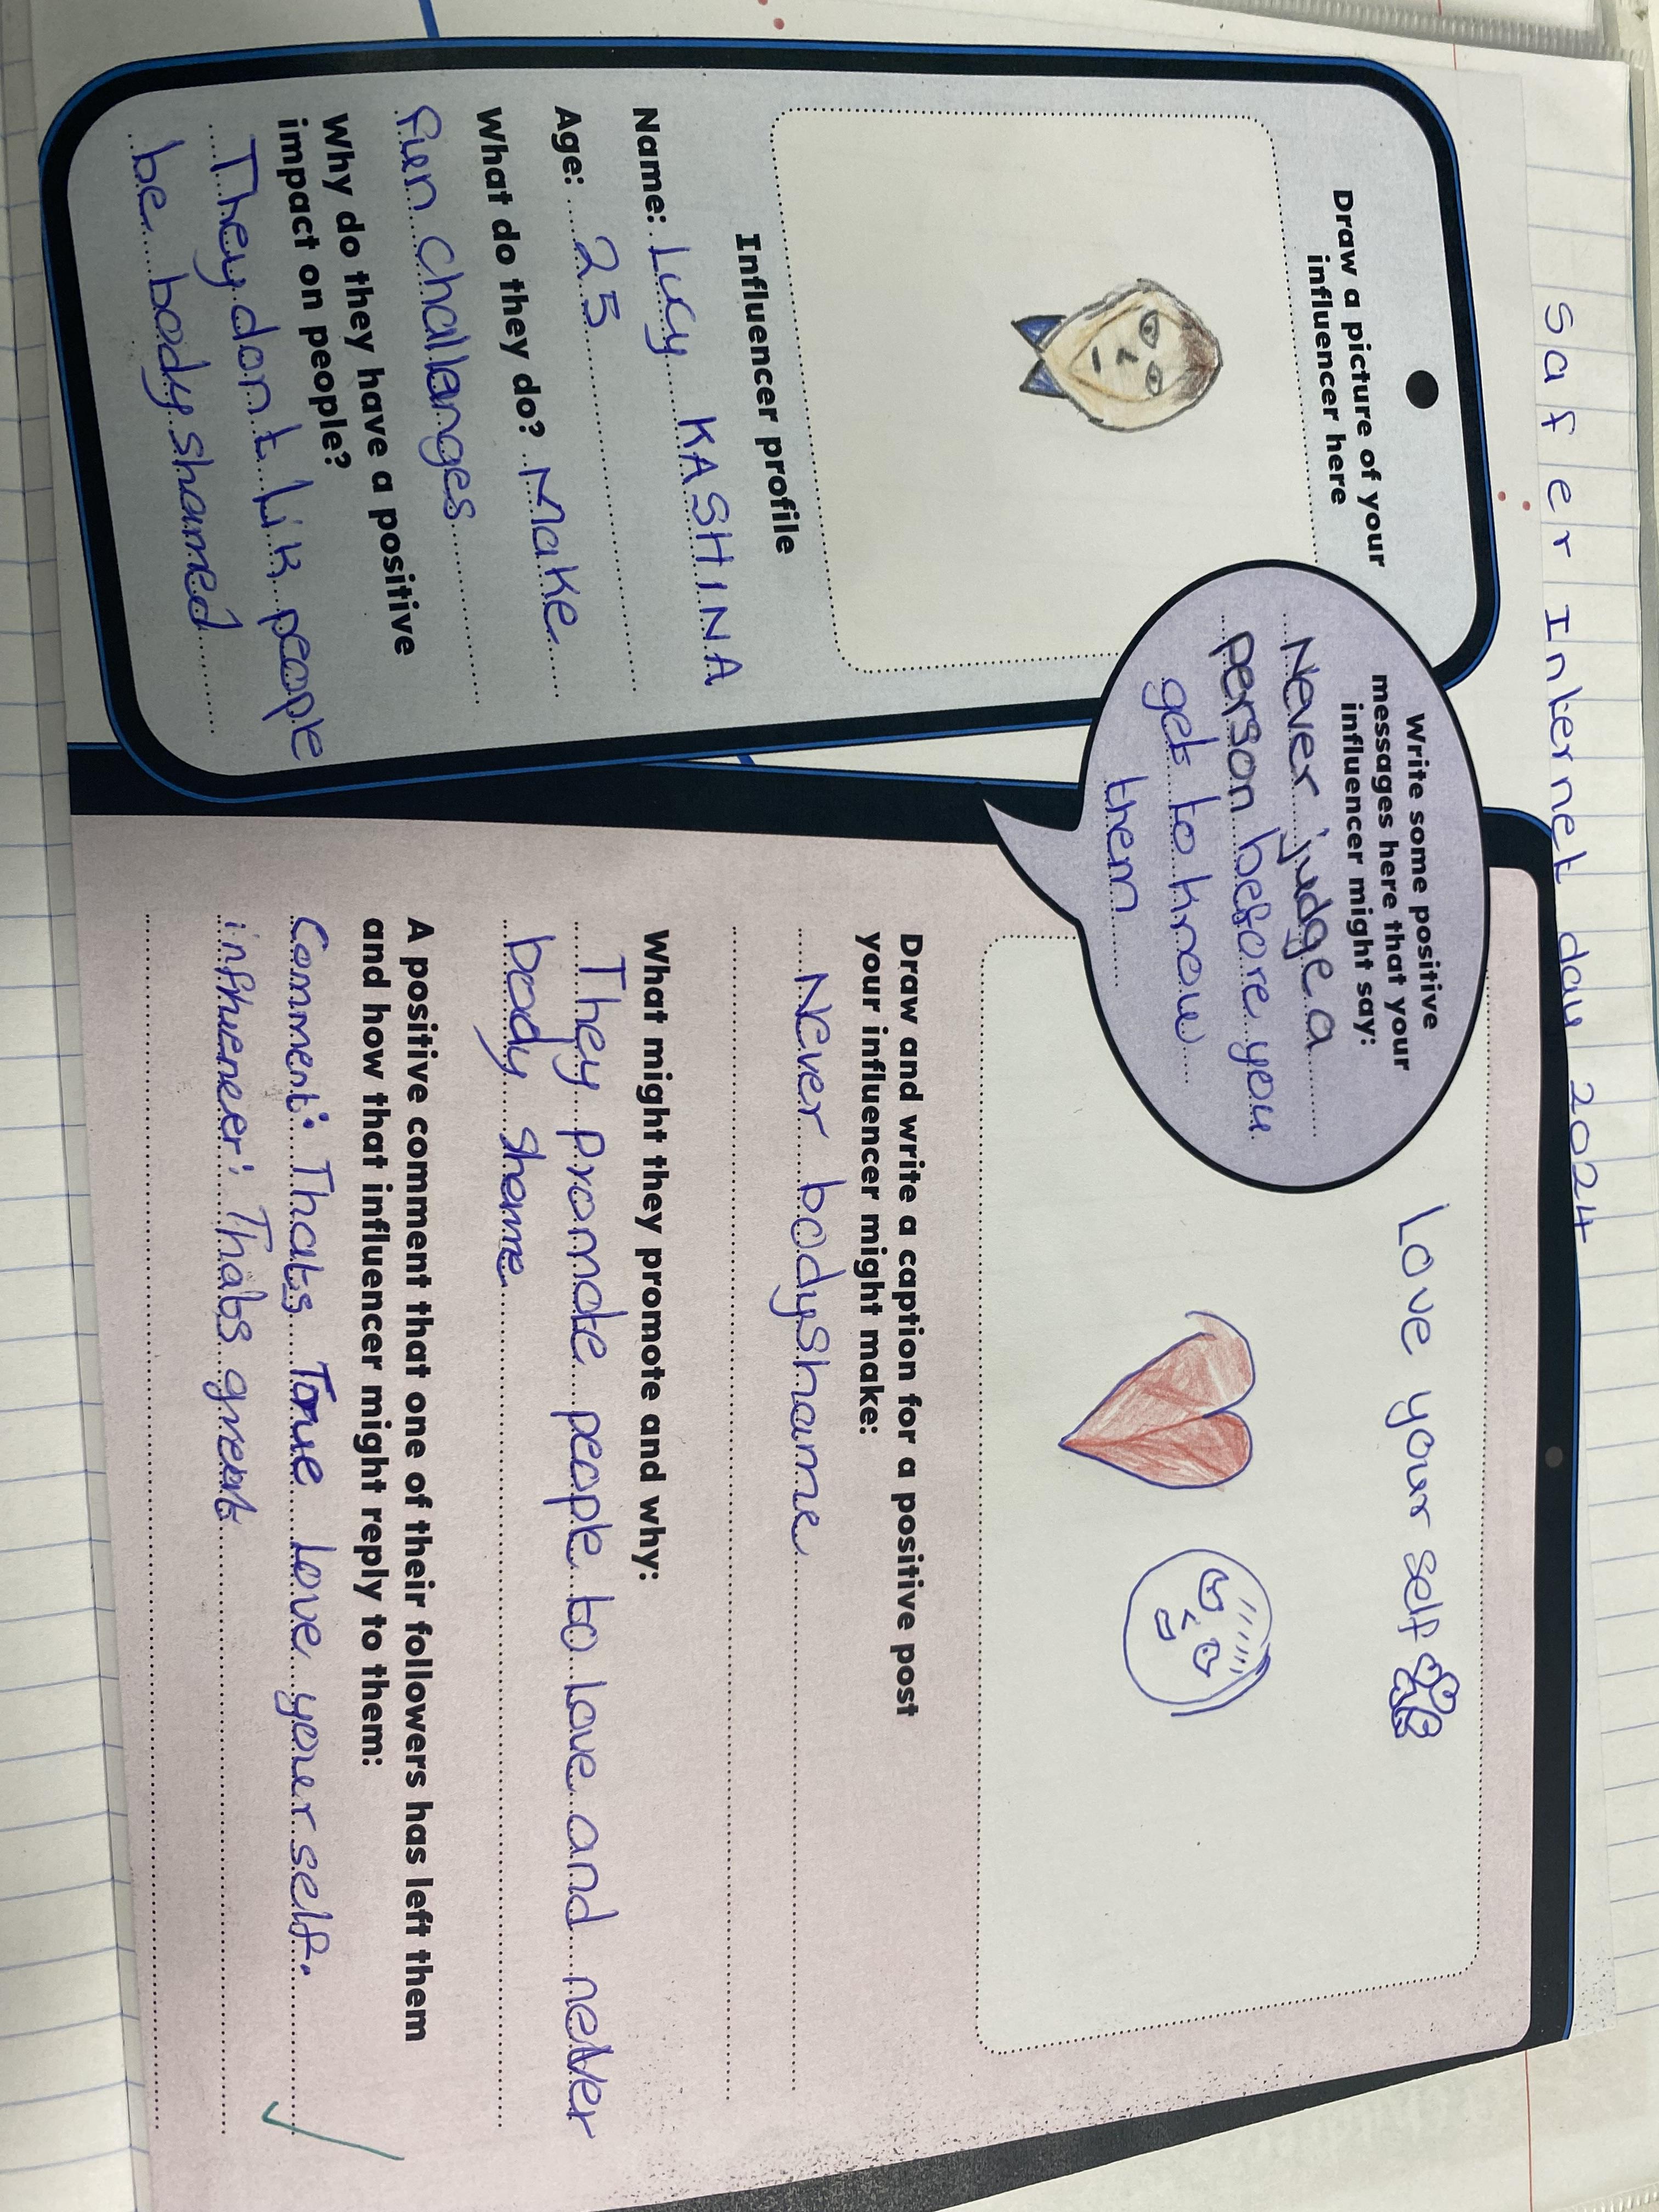 Safer Internet day 2024
Draw a picture of your
influencer here
Influencer profile
Name: Lucy KASHINA
Age: 23
What do they do? Make
fun challenges
Why do they have a positive
impact on people?
They don't Lik people
be body shamed
Write some positive
messages here that your
influencer might say:
Never judge a
person before you
get to know
them
Love your self
Draw and write a caption for a positive post
your influencer might make:
Never bodyshame
What might they promote and why:
They promote people to love and never
body shame
A positive comment that one of their followers has left them
and how that influencer might reply to them:
Comment: Thats True love your self.
influencer: Thats great